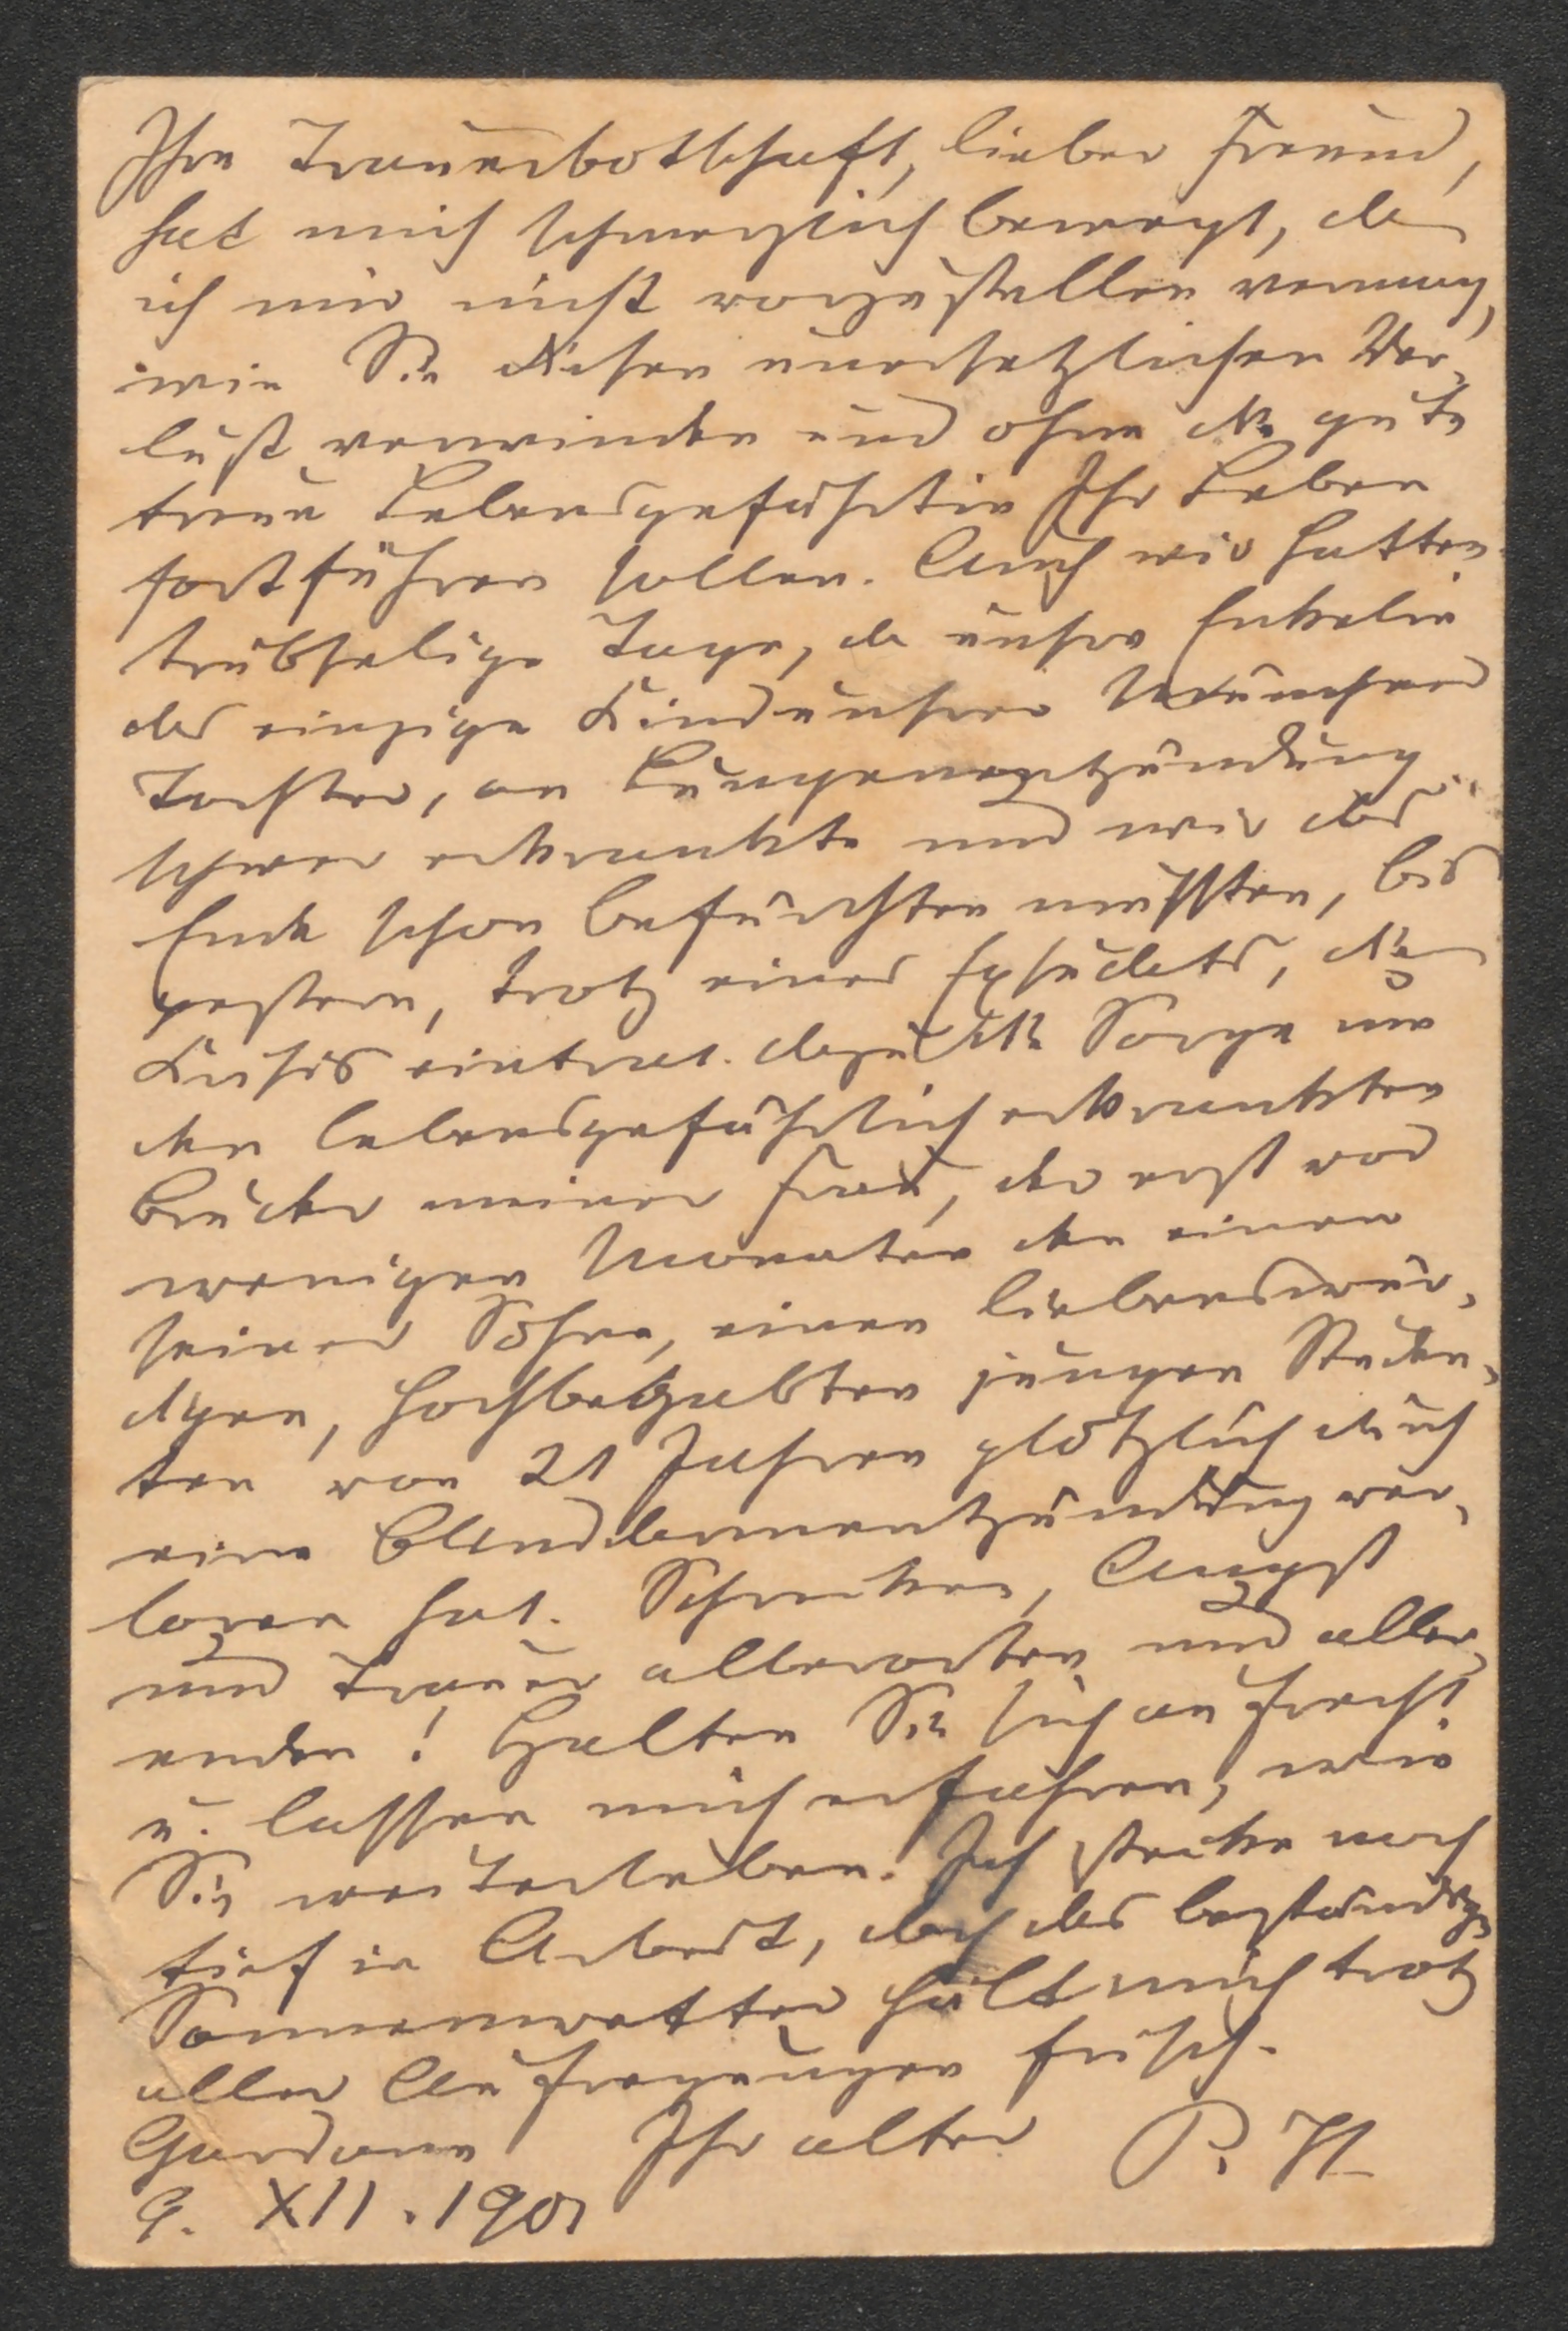 Ihre Trauerbotschaft, lieber Freund,
hat mich schmerzlich bewegt, da
ich mir nicht vorzustellen vermag,
wie Sie diesen unersetzlichen Ver-
lust verwinden und ohne die gute
treue Lebensgefährtin Ihr Leben
fortführen sollen. Auch wir hatten
trübselige Tage, da unsre Enkelin
das einzige Kind unsrer Münchner
Tochter, an Lungenentzündung
schwer erkrankte und wir das
Ende schon befürchten mußten, bis
gestern, trotz eines Exsudats, die
Krisis eintrat. dazu die Sorge um
den lebensgefährlich erkrankten
Bruder meiner Frau, der erst vor
wenigen Monaten den einen
seiner Söhne, einen liebenswür-
digen, hochbegabten jungen Studen-
ten von 21 Jahren plötzlich durch
eine Blinddarmentzündung ver-
loren hat. Schrecken, Angst
und Trauer allerorten und aller
enden! Halten Sie sich aufrecht
u. lassen mich erfahren, wie
Sie weiterleben. Ich stecke noch
tief in Arbeit, doch das beständige
Sonnenwetter hält mich trotz
aller Aufregungen frisch.
Gardone Ihr alter P. H.
9. XII. 1901